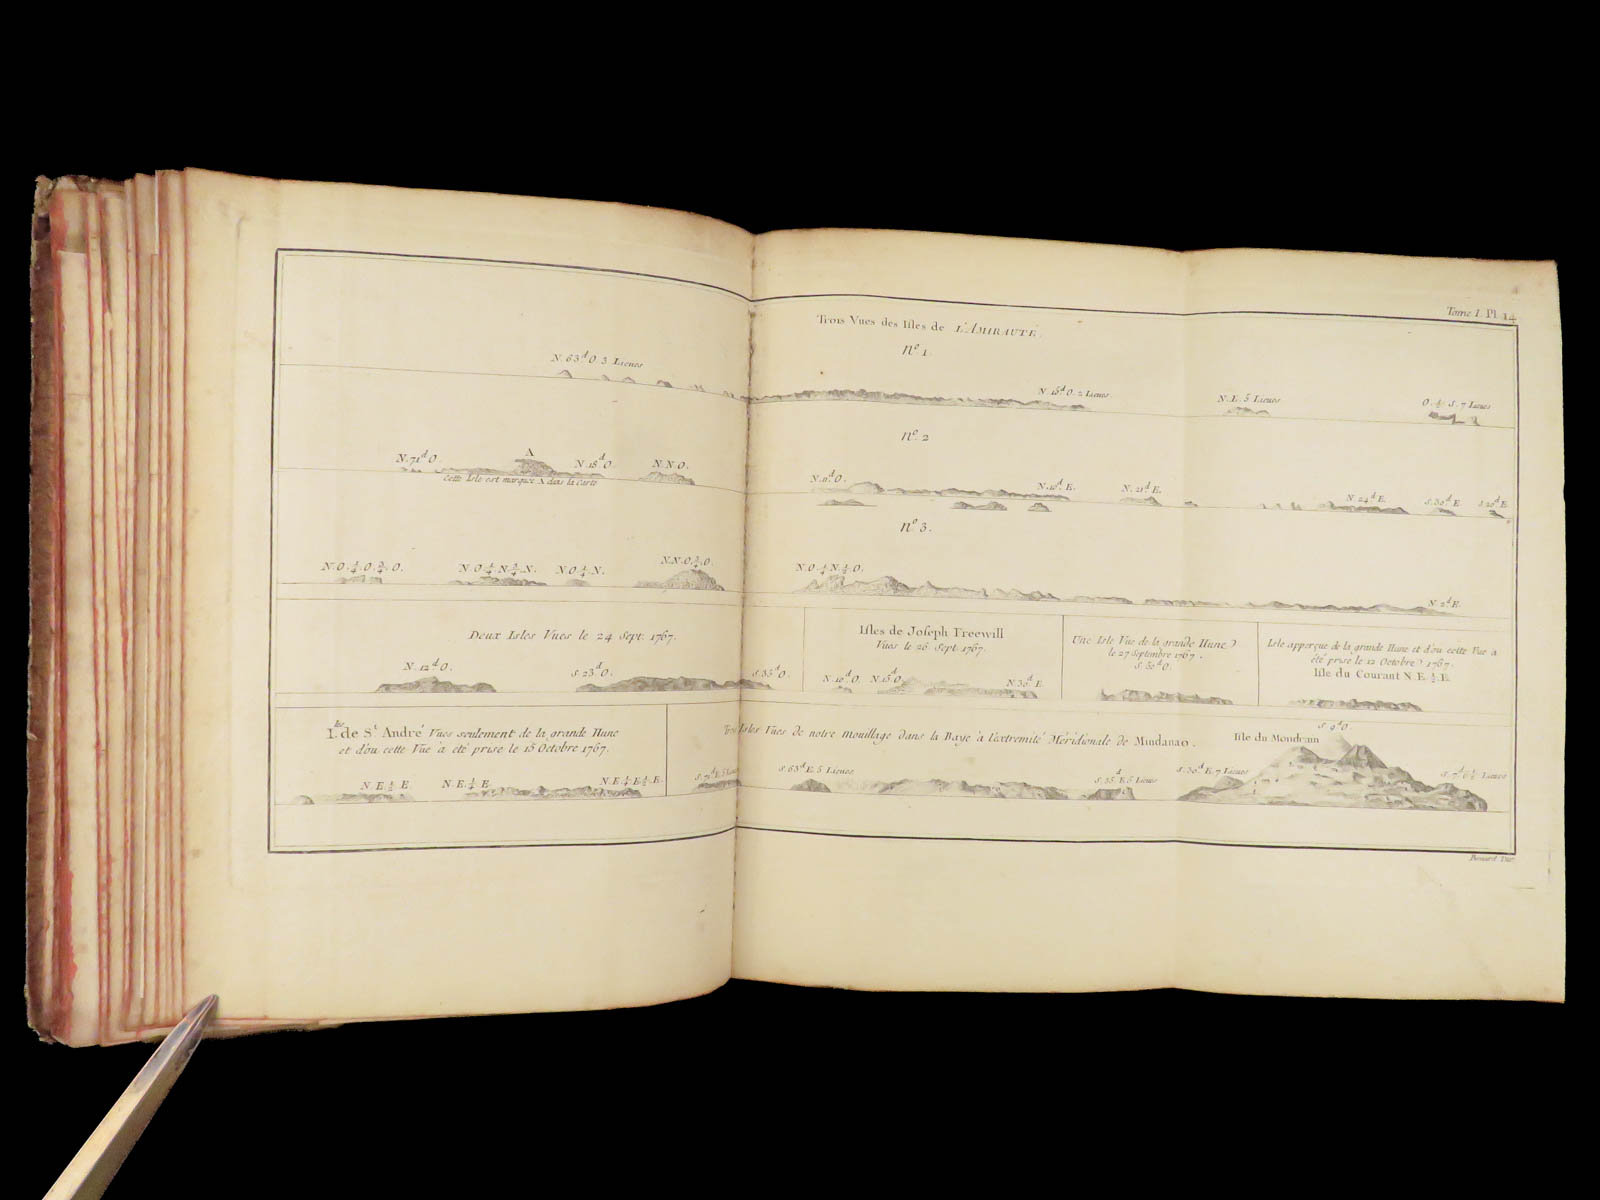 Tome I. Pl. 14
Trois Vues des Isles de L'AMIRAUTÉ.
N.º 1.
N. 63.d O. 3 Lieues
N. 15.d O. 2 Lieues
N. E. 5 Lieues
O. ¼ S. 7 Lieues
N.º 2
N. 71.d O.
A
N. 18.d O.
N. N. O.
Cette Isle est marquée A dans la Carte
N. 11.d O.
N. 10.d E.
N. 21.d E.
N. 24.d E.
S. 30.d E.
S. 20.d E.
N.º 3.
N. O. ¼ O. ¾ O.
N. O. ¼ N. ¾ N.
N. O. ¼ N.
N. N. O. ¾ O.
N. O. ¼ N. ½ O.
N. 2.d E.
Deux Isles Vues le 24 Sept. 1767.
N. 12.d O.
S. 23.d O.
S. 35.d O.
Isles de Joseph Freewill
Vues le 26 Sept. 1767.
N. 16.d O.
N. 15.d O.
N. 30.d E.
Une Isle Vue de la grande Hune
le 27 Septembre 1767.
S. 30.d O.
Isle apperçue de la grande Hune et d'où cette Vue a
été prise le 12 Octobre 1767.
Isle du Courant N. E. ½ E.
I.les de S.t André Vues seulement de la grande Hune
et d'où cette Vue à été prise le 15 Octobre 1767.
N. E. ½ E.
N. E. ¼ E.
N. E. ¼ E. ½ E.
Trois Isles Vues de notre mouillage dans la Baye à l'extremité Méridionale de Mindanao.
S. 71.d E. 5 Lieues
S. 63.d E. 5 Lieues
S. 35.d E. 5 Lieues
S. 30.d E. 7 Lieues
Isle du Mondrain
S. 9.d O.
S. 7.d 6½ Lieues
Benard Dir.